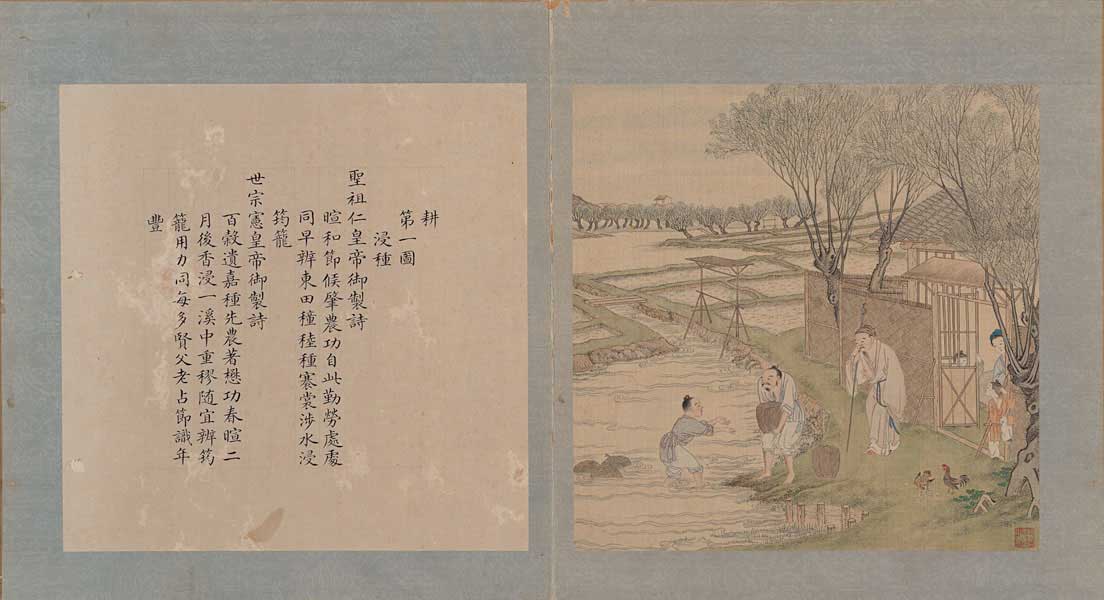 耕
第一圖
浸種
聖祖仁皇帝御製詩
暄和節候肇農功自此勤勞處處
同早辨東田穜稑種褰裳涉水浸
筠籠
世宗憲皇帝御製詩
百穀遺嘉種先農著懋功春暄二
月後香浸一溪中重穋随宜辨筠
籠用力同每多賢父老占節識年
豐